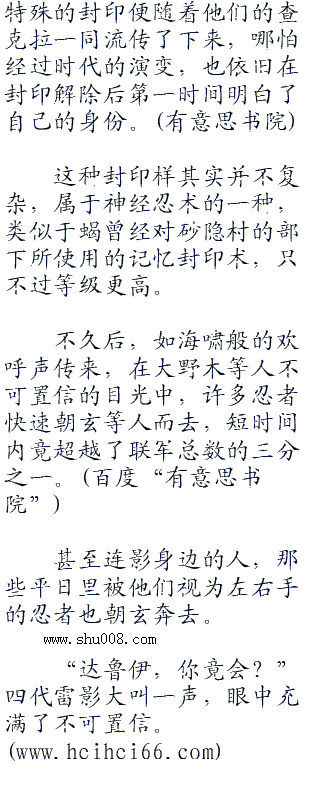 特殊的封印便随着他们的查
克拉一同流传了下来，哪怕
经过时代的演变，也依旧在
封印解除后第一时间明白了
自己的身份。(有意思书院)
这种封印样其实并不复
杂，属于神经忍术的一种，
类似于蝎曾经对砂隐村的部
下所使用的记忆封印术，只
不过等级更高。
不久后，如海啸般的欢
呼声传来，在大野木等人不
可置信的目光中，许多忍者
快速朝玄等人而去，短时间
内竟超越了联军总数的三分
之一。(百度“有意思书
院”)
甚至连影身边的人，那
些平日里被他们视为左右手
的忍者也朝玄奔去。
www.shu008.com
“达鲁伊，你竟会？”
四代雷影大叫一声，眼中充
满了不可置信。
(www.hcihci66.com)